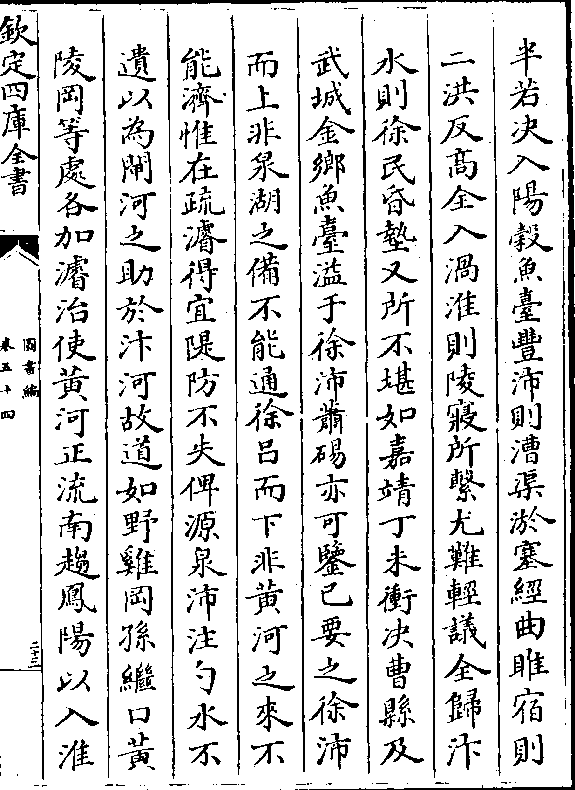 半若决入陽榖魚臺豐沛則漕渠淤塞經曲睢宿則
二洪反髙全入渦淮則陵寢所繫尤難輕議全歸汴
水則徐民昏墊又所不堪如嘉靖丁未衝决曹縣及
武城金鄉魚臺溢于徐沛蕭碭亦可鑒已要之徐沛
而上非泉湖之備不能通徐吕而下非黄河之來不
能濟惟在疏濬得宜隄防不失俾源泉沛注勺水不
遺以為閘河之助於汴河故道如野雞岡孫繼口黄
陵岡等處各加濬治使黄河正流南趨鳳陽以入淮
欽定四庫全書
圖書編
卷五十四
二十三